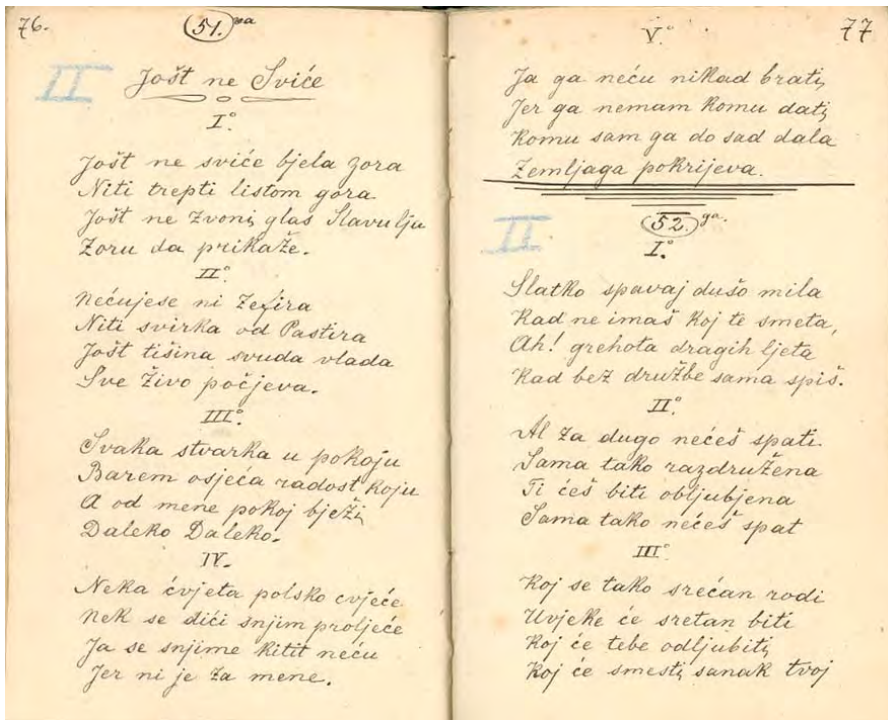 76.
51.ga
II
Jošt ne Sviće
I°.
Jošt ne sviće bjela zora
Niti trepti listom gora
Jošt ne zvoni, glas Slavulju
Zoru da prikaže.
II°.
Nećujese ni Zefira
Niti svirka od Pastira
Jošt tišina svuda vlada
Sve živo počjeva.
III°.
Svaka stvarka u pokoju
Barem osjeća radost koju
A od mene pokoj bježi,
Daleko Daleko.
IV.
Neka ćvjeta polsko cvjeće
Nek se dići snjim proljeće
Ja se snjime kitit neću
Jer ni je za mene.
V.°
77
Ja ga neću nikad brati,
Jer ga nemam komu dati,
Komu sam ga do sad dala
Zemljaga pokrijeva.
52.ga.
II
I°.
Slatko spavaj dušo mila
Kad ne imaš koj te smeta,
Ah! grehota dragih ljeta
Kad bez družbe sama spiš.
II°.
Al za dugo nećeš spati
Sama tako razdružena
Ti ćeš biti obljubjena
Sama tako nećeš spat
III°
Koj se tako srećan rodi
Uvjeke će sretan biti
Koj će tebe odljubiti,
Koj će smesti, sanak tvoj